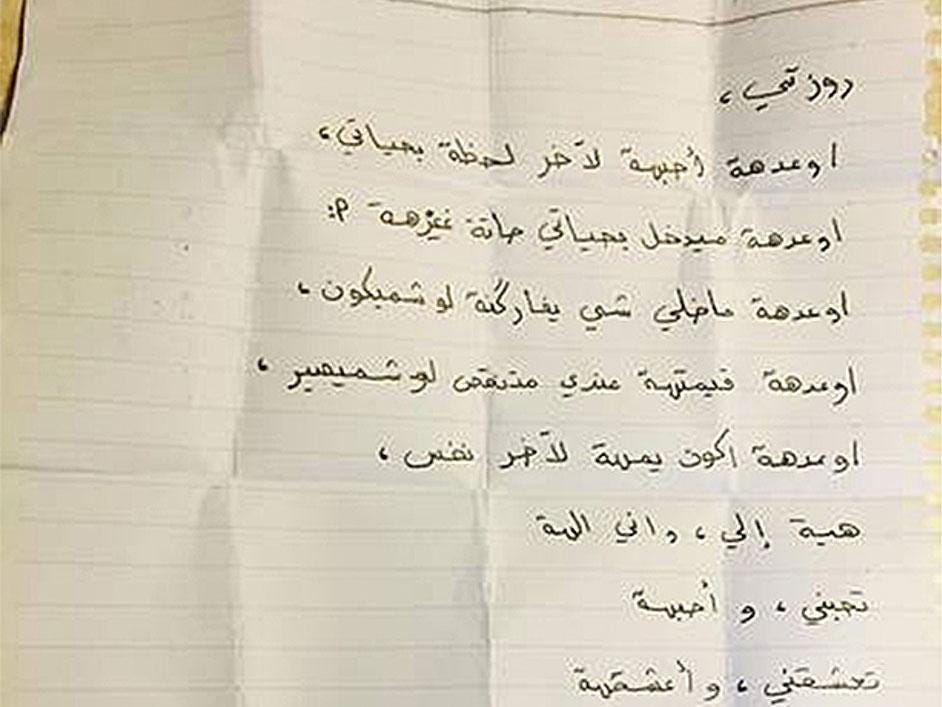 روزتي ،
اوعدهة أحبهة لآخر لحظة بحياتي ،
اوعدهة ميدخل بحياتي حاتة غيرهة :P
اوعدهة ماخلي شي يفارگنة لو شميكون ،
اوعدهة قيمتهة عندي متنقص لو شميصير ،
اوعدهة اكون يمهة لآخر نفس ،
هية إلي ، واني الهة
تحبني ، و أحبهة
تعشقني ، و أعشقهة